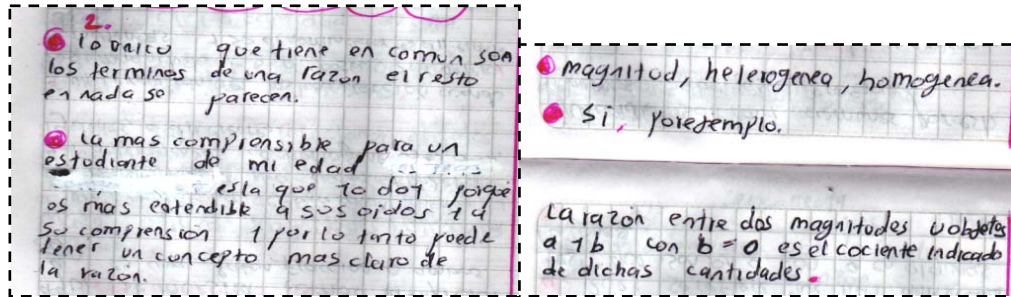 2.
lo unico que tiene en comun son
los terminos de una razon el resto
en nada se parecen.
la mas comprensible para un
estudiante de mi edad
es la que yo doy porque
es mas entendible a sus oidos y a
su comprension y por lo tanto puede
tener un concepto mas claro de
la razon.
magnitud, heterogenea, homogenea.
si, por ejemplo.
La razón entre dos magnitudes u objetos
a y b con b = 0 es el cociente indicado
de dichas cantidades.